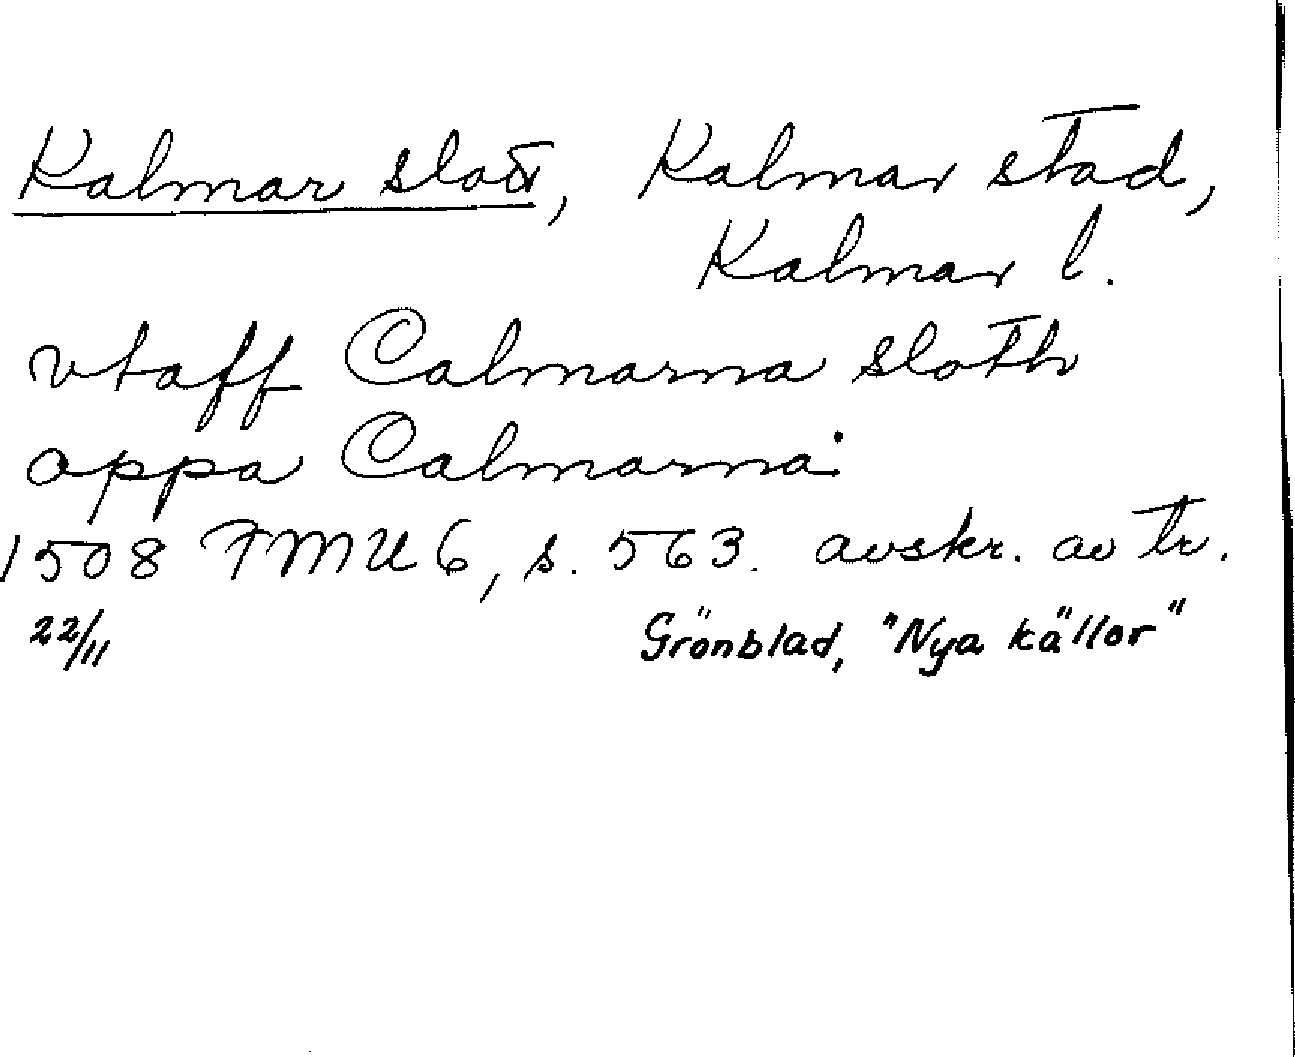 Kalmar slott, Kalmar stad,
Kalmar l.
vtaff Calmarna sloth
appa Calmarna:
1508 FMU 6, s. 563. avskr. av tr.
22/11 Grönblad, "Nya källor"